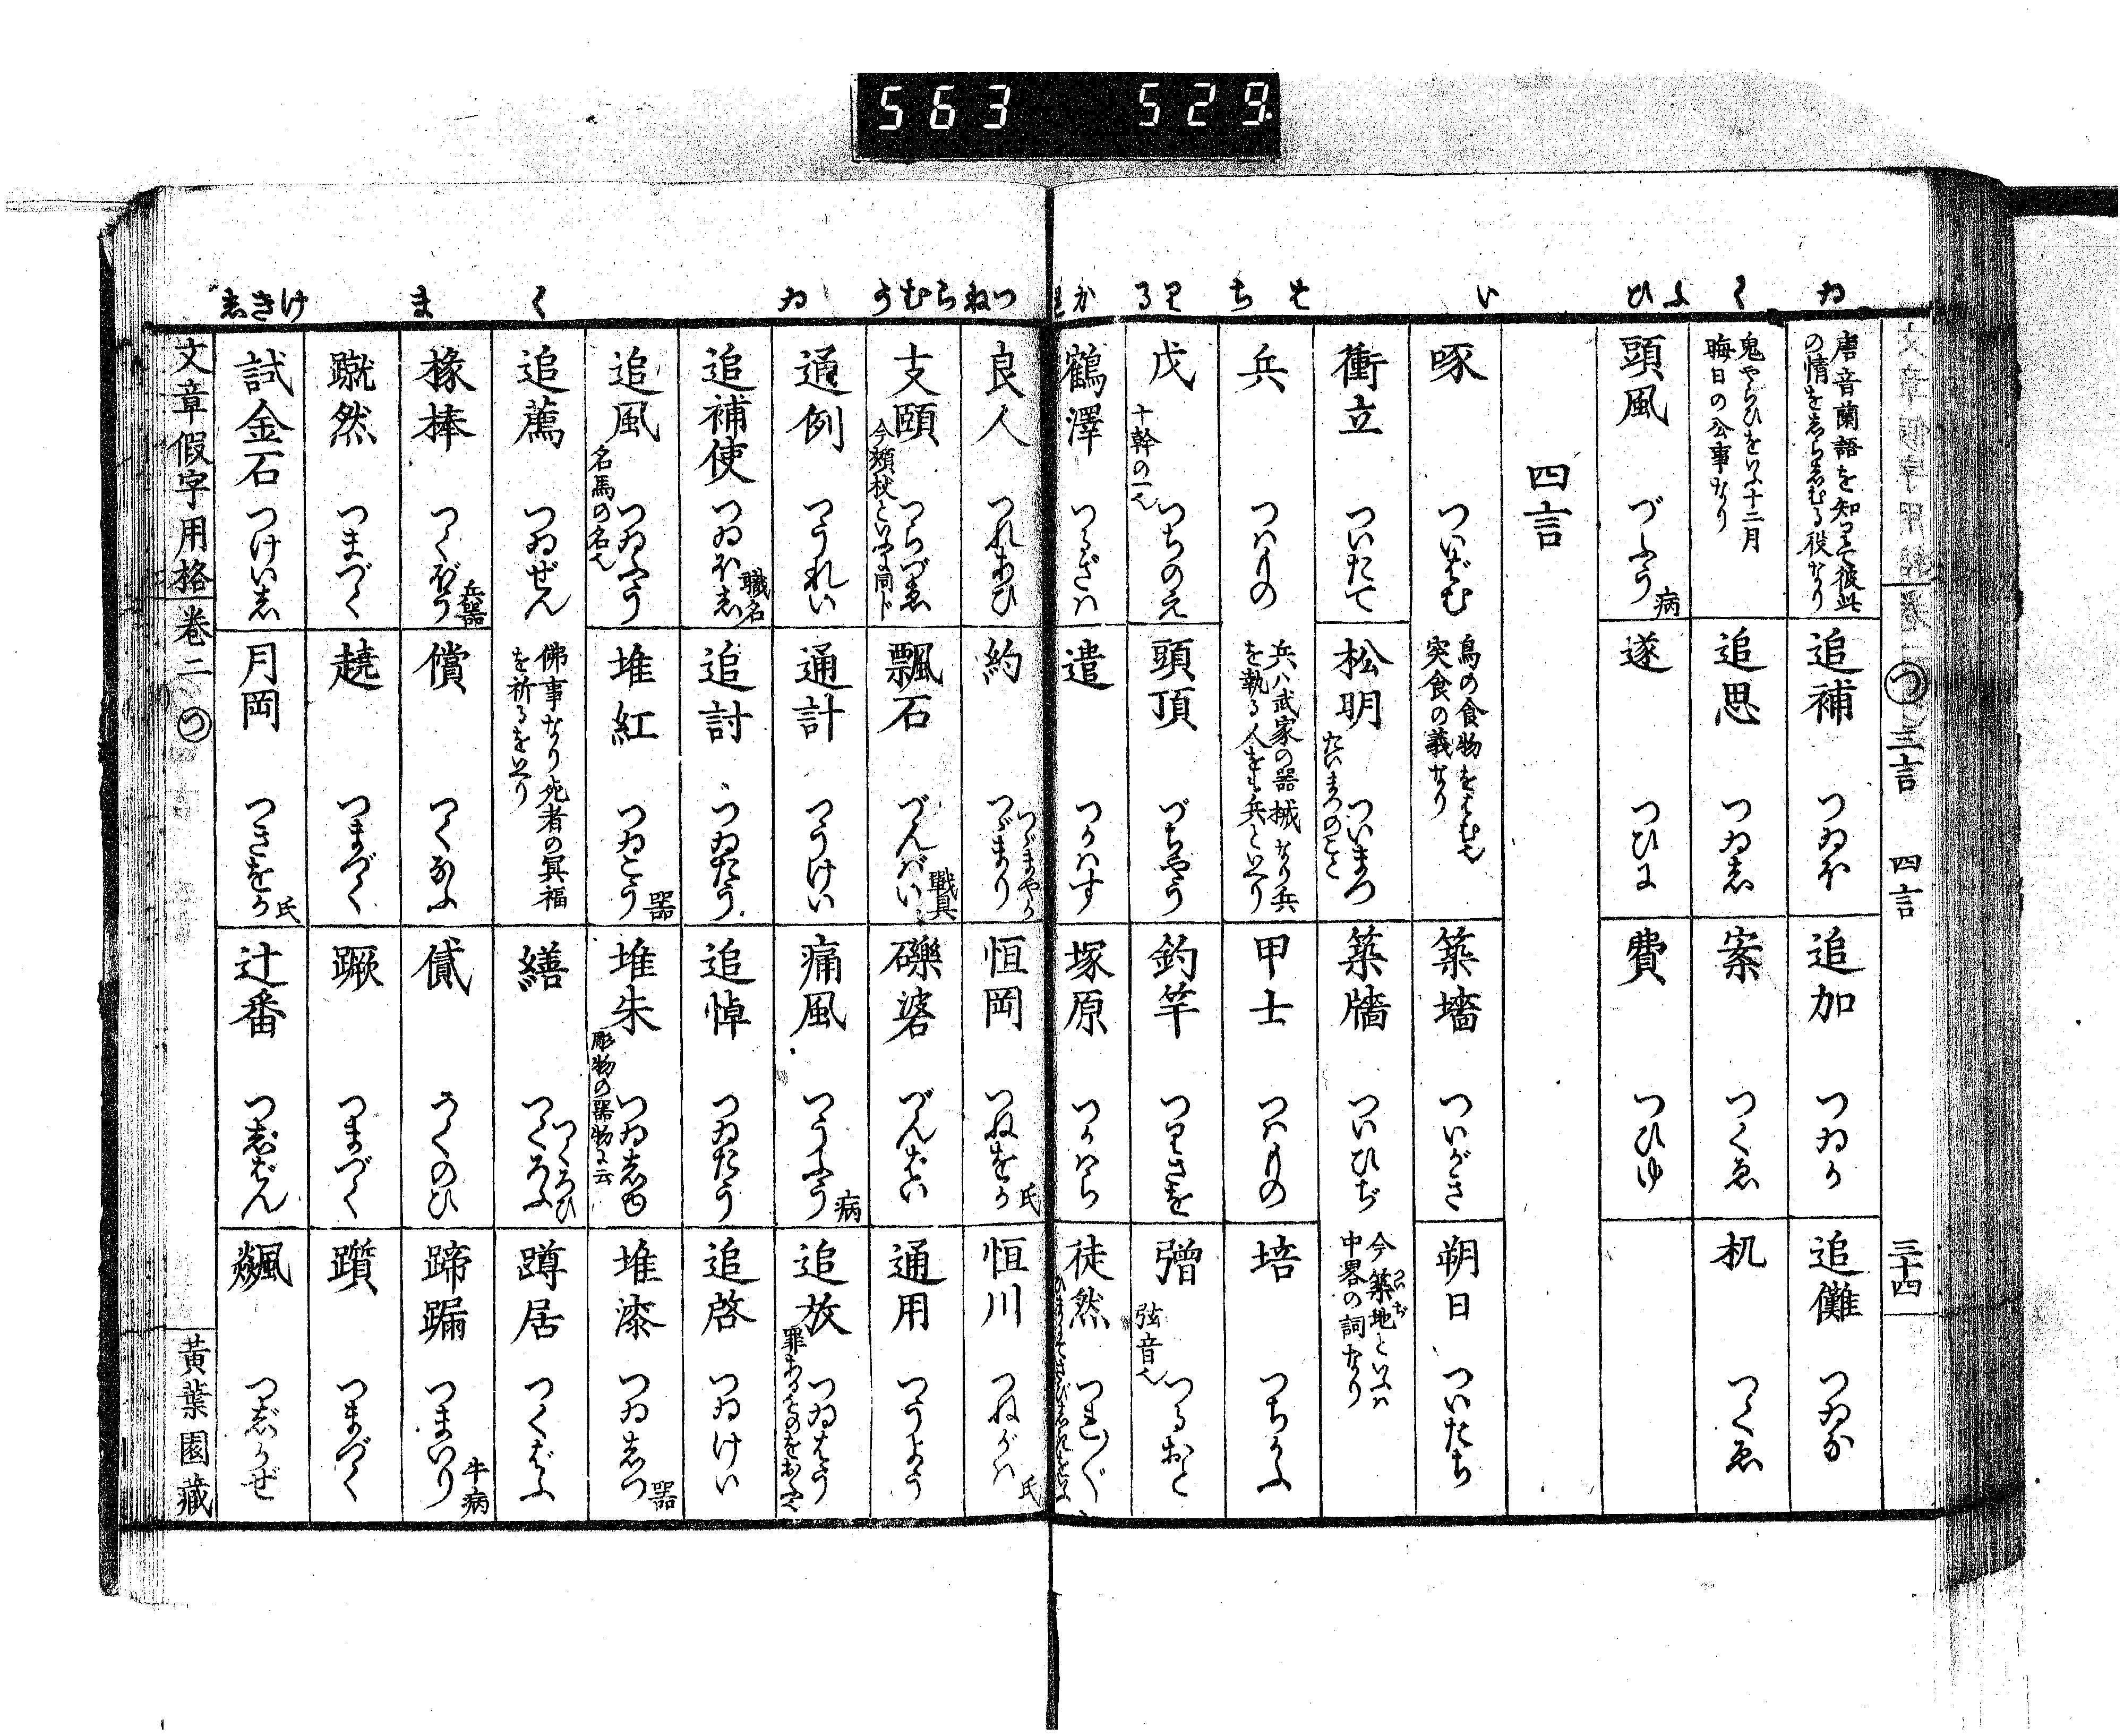 563 529
ゐ
く
ふ
ひ
い
そ
ち
り
る
か
文章假字用格
つ
三言
四言
三十四
唐音蘭語を知りて彼此
の情をしらしむる役なり
追補 つゐほ
追加 つゐか
追儺 つゐな
鬼やらひをいふ十二月
晦日の公事なり
追思 つゐし
案 つくゑ
机 つくゑ
頭風 づふう 病
遂 つひに
費 つひゆ
四言
啄 ついばむ
鳥の食物をはむ也
突食の義なり
築墻 ついがき
朔日 ついたち
衝立 ついたて
松明 ついまつ
たいまつのこと
築牆 ついひぢ
今築地といふハ
ついぢ
中畧の詞なり
兵 つハもの
兵ハ武家の器械なり兵
を執る人をも兵といへり
甲士 つハもの
培 つちかふ
戊 つちのえ
十幹の一也
頭頂 づちやう
釣竿 つりさを
弸 つるおと
弦音也
鶴澤 つるざハ
遣 つかハす
塚原 つかハら
徒然 つれ〴〵
つ
ね
ら
む
う
ゐ
く
ま
け
き
し
良人 つれあひ
約 つゞまり
つゞまやか
恒岡 つねをか 氏
恒川 つねがハ 氏
支頤 つらづゑ
今頬杖といふに同ド
飄石 づんバい 戰具
礫碆 づんばい
通用 つうよう
通例 つうれい
通計 つうけい
痛風 つうふう 病
追放 つゐはう
罪あるものをおふ也
追補使 つゐほし 職名
追討 つゐたう
追悼 つゐたう
追啓 つゐけい
追風 つゐふう
名馬の名也
堆紅 つゐこう 器
堆朱 つゐしゆ
彫物の器物に云
堆漆 つゐしつ 器
追薦 つゐぜん
佛事なり死者の冥福
を祈るをいへり
繕 つくろふ
つくろひ
蹲居 つくばふ
椽棒 つくばう 兵器
償 つくなふ
貸 つくのひ
蹄漏 つまいり 牛病
蹴然 つまづく
趬 つまづく
蹶 つまづく
躓 つまづく
試金石 つけいし
月岡 つきをか 氏
辻番 つじばん
飆 つじかぜ
文章假字用格
卷二
つ
黃葉園藏